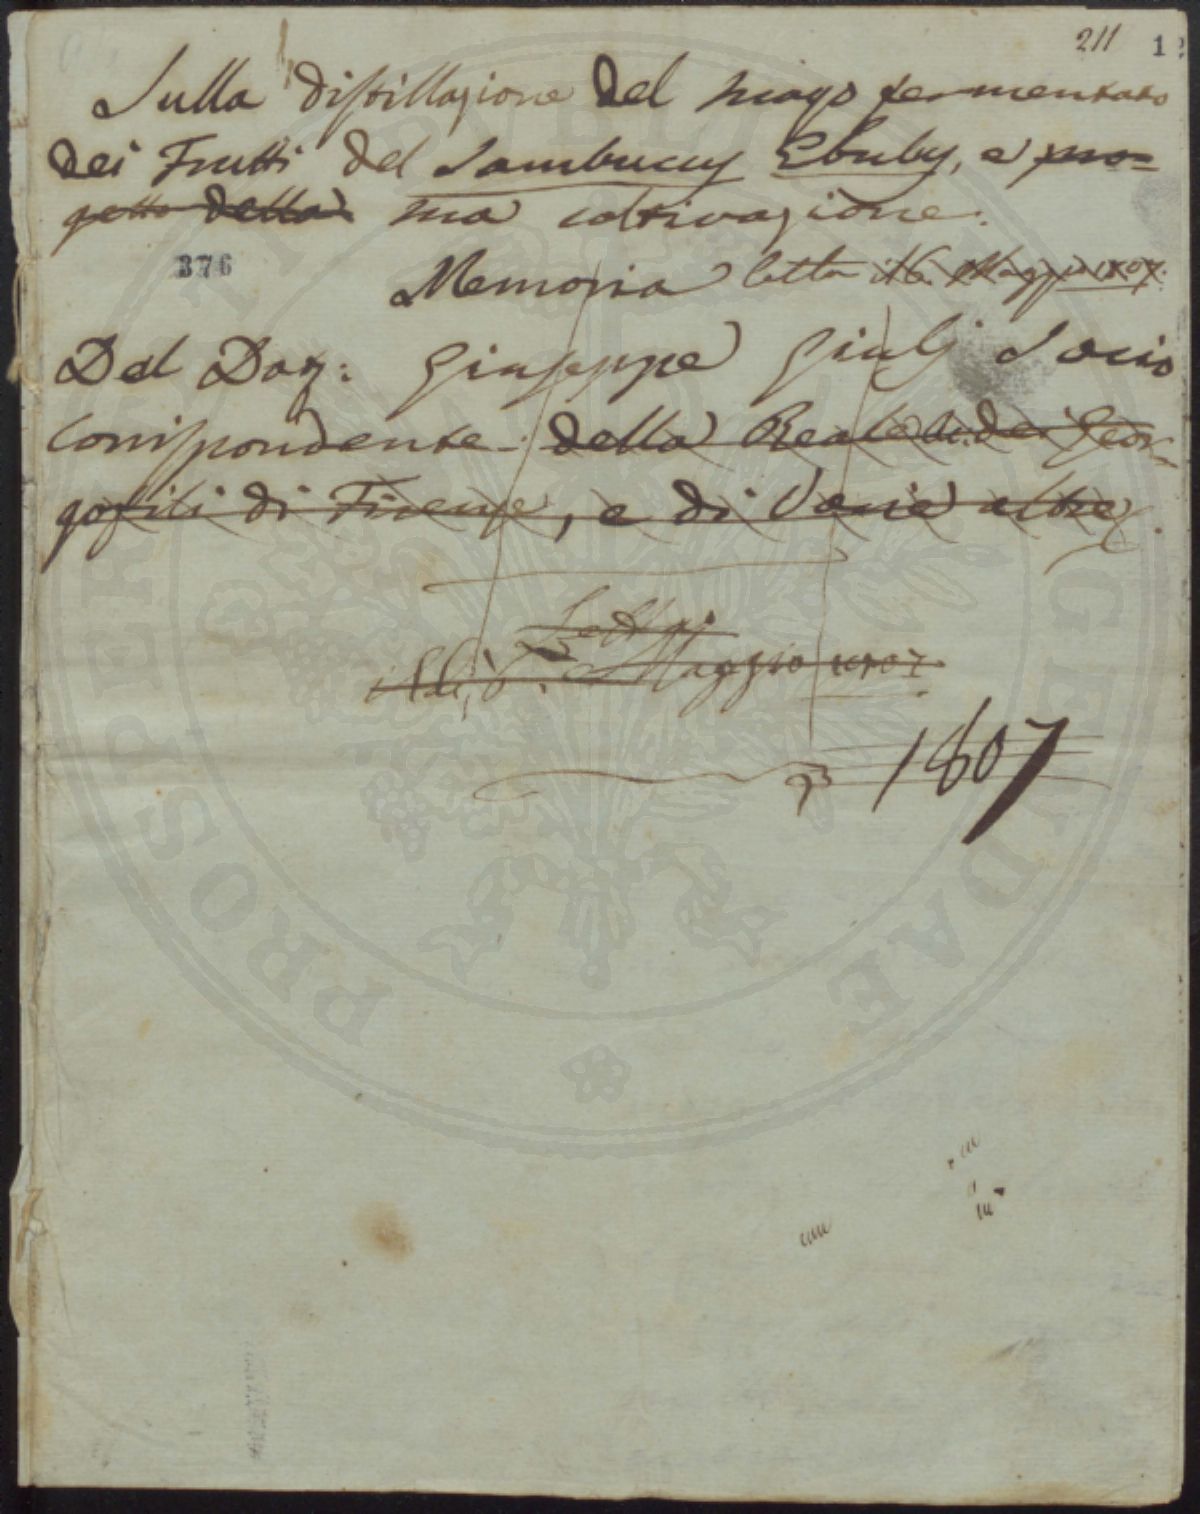 211 12
Sulla distillazione del sugo fermentato
dei Frutti del Sambucus Ebulus, e pro=
getto della sua coltivazione.
376
Memoria letta il 6. Maggio 1807.
Del Dor: Giuseppe Giulj Socio
Corrispondente della Reale Ac. dei Geor-
gofili di Firenze, e di Varie altre.
Letta
il dì 6. Maggio 1807.
1807
PROSPERITATI PUBLICAE AUGENDAE